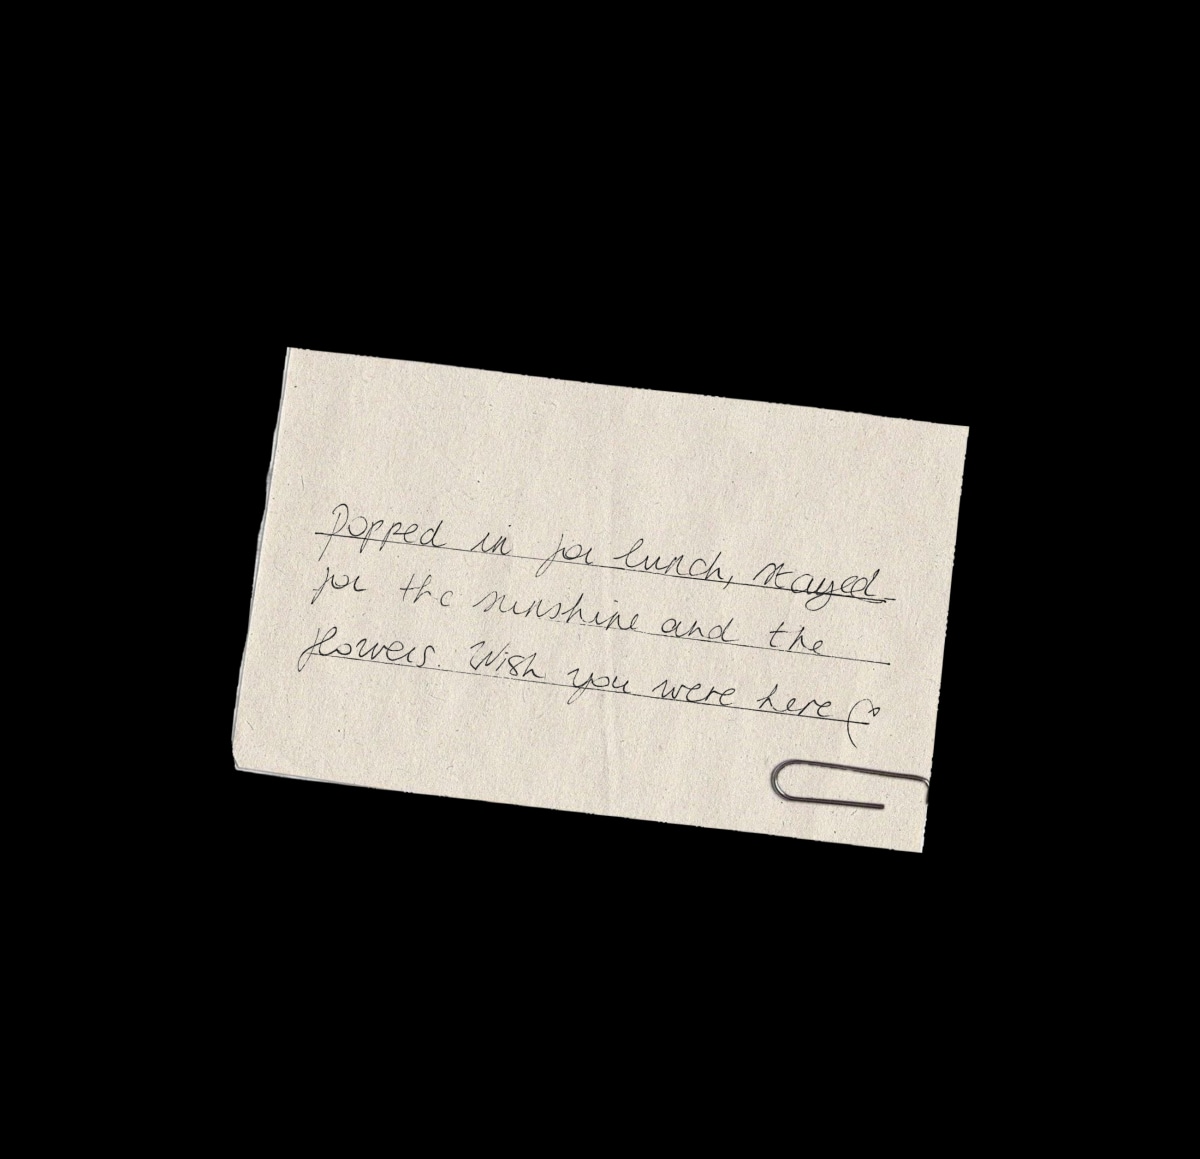 Popped in for lunch, stayed
for the sunshine and the
flowers. Wish you were here (: